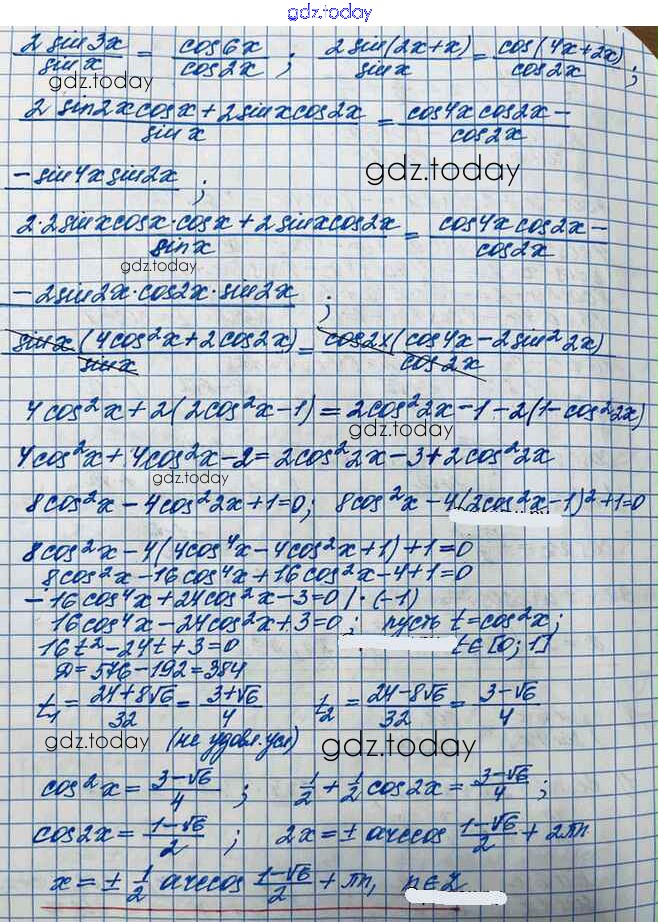 gdz.today
2 sin3x / sin x = cos6x / cos2x ; 2 sin(2x+x) / sin x = cos(4x+2x) / cos2x ;
gdz.today
2 sin2x cosx + 2 sinx cos2x / sin x = cos4x cos2x − / cos2x
− sin4x sin2x ;
gdz.today
2·2sinx cosx·cosx + 2 sinx cos2x / sin x = cos4x cos2x − / cos2x
gdz.today
− 2sin2x·cos2x·sin2x ;
sin x (4cos²x + 2cos2x) / sin x = cos2x (cos4x − 2sin²2x) / cos2x
4cos²x + 2(2cos²x−1) = 2cos²2x−1−2(1−cos²2x)
gdz.today
4cos²x + 4cos²x − 2 = 2cos²2x − 3 + 2cos²2x
gdz.today
8cos²x − 4cos²2x + 1 = 0; 8cos²x − 4(2cos²x−1)² + 1 = 0
8cos²x − 4(4cos⁴x − 4cos²x + 1) + 1 = 0
8cos²x − 16cos⁴x + 16cos²x − 4 + 1 = 0
− 16cos⁴x + 24cos²x − 3 = 0 |·(−1)
16cos⁴x − 24cos²x + 3 = 0 ; пусть t = cos²x;
16t² − 24t + 3 = 0 t∈[0; 1]
D = 576 − 192 = 384
t₁ = 24+8√6 / 32 = 3+√6 / 4 t₂ = 24−8√6 / 32 = 3−√6 / 4
gdz.today (не удовл. усл) gdz.today
cos²x = 3−√6 / 4 ; 1/2 + 1/2 cos2x = 3−√6 / 4 ;
cos2x = 1−√6 / 2 ; 2x = ± arccos 1−√6 / 2 + 2πn
x = ± 1/2 arccos 1−√6 / 2 + πn, n∈Z